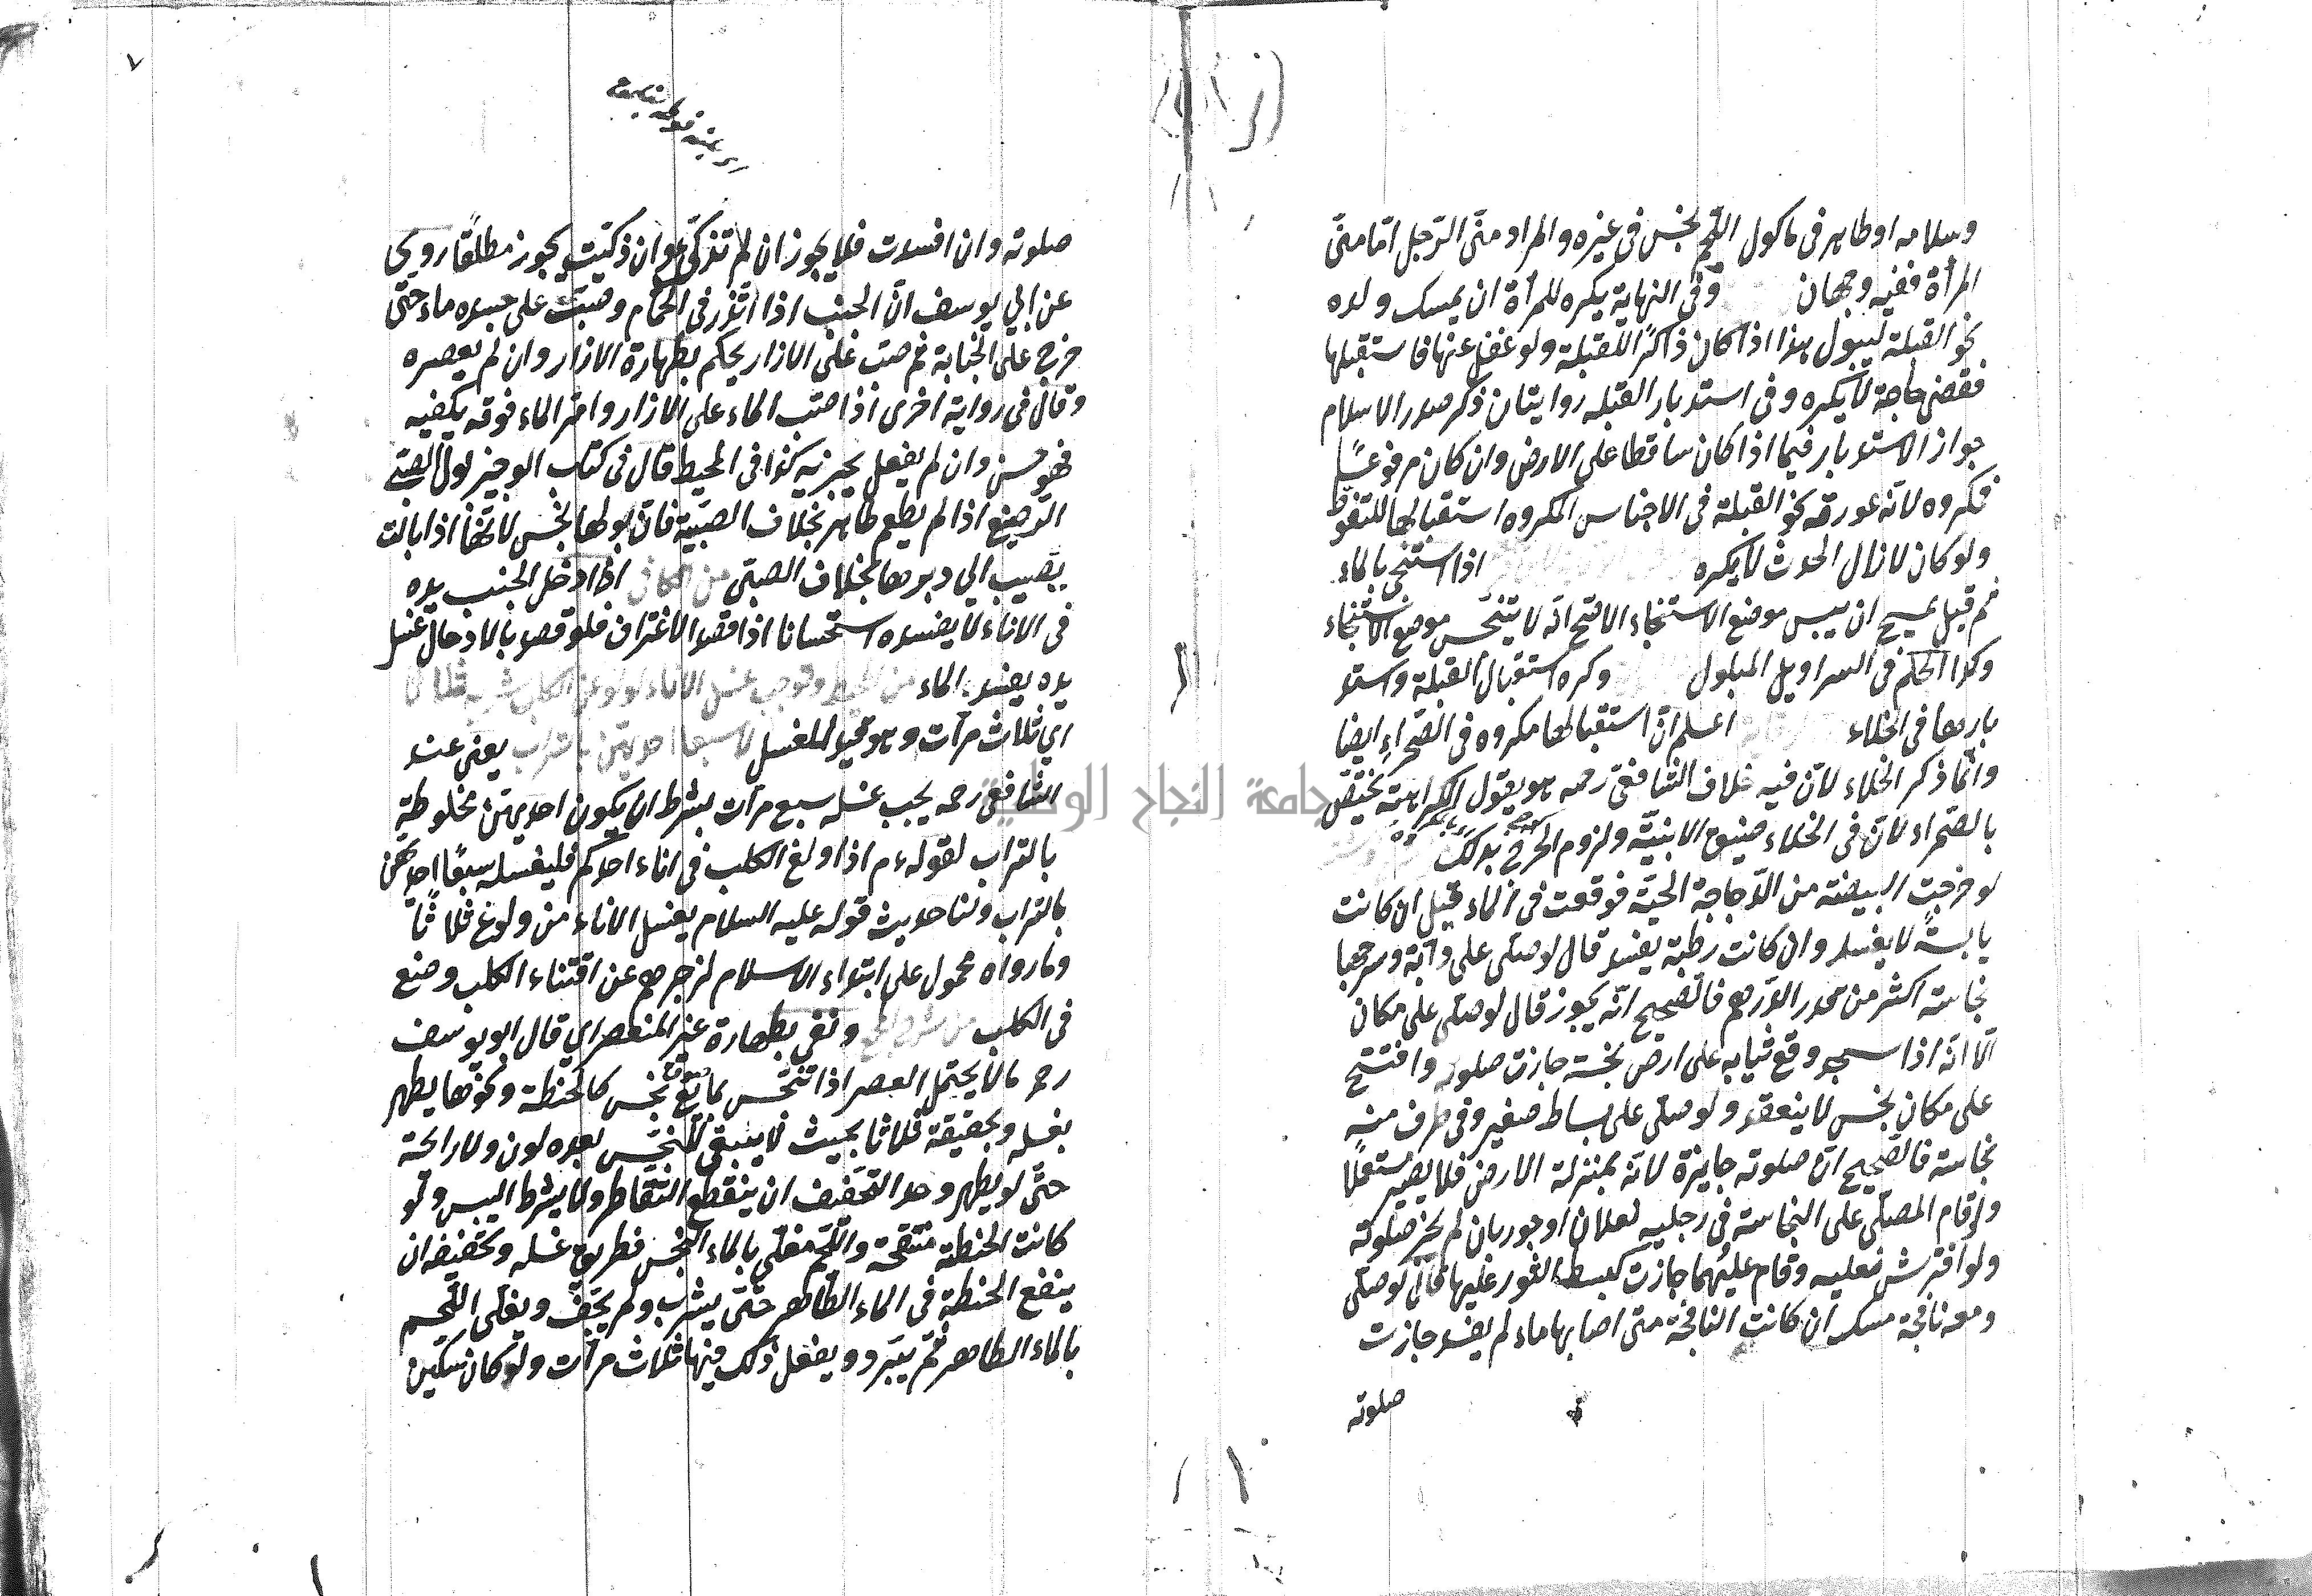 وسلامه او طاهر فى ماكول اللحم نجس فى غيره والمراد منّى الرّجل امّا منّى
المرأة ففيه وجهان وفى النهاية يكره للمرأة ان يمسك ولده
نحو القبلة ليبول هذا اذا كان ذاكرًا للقبلة ولو غفل عنها فاستقبلها
فقضى حاجة لا يكره وفى استدبار القبله روايتان ذكر صدر الاسلام
جواز الاستدبار فيما اذا كان ساقطا على الارض وان كان مرفوعًا
فكروه لانّه عورته نحو القبلة فى الاجناس المكروه استقبالها للتغوّط
ولو كان لازال الحدث لا يكره اذا استنجى بالماء
ثم قبل ان يبس موضع الاستنجاء الاصح انّه لا يتنجّس موضع الاستنجاء
وكذا الحكم فى السراويل المبلول وكره استقبال القبلة واستد
بارها فى الخلاء اعلم انّ استقبالها مكروه فى الصّحراء ايضا
وانّما ذكر الخلاء لانّ فيه خلاف الشّافعىّ رحمه هو يقول الكراهيّة تختصّ
بالصّحراء لانّ فى الخلاء ضيق الابنيّة ولزوم الحرج بذلك
لو خرجت البيضة من الدّجاجة الحيّة فوقعت فى الماء قيل ان كانت
يابسةً لا يفسد وان كانت رطبة يفسد قال لو صلّى على دابّة وسرجها
نجاسته اكثر من قدر الدّرهم فالصّحيح انّه يجوز قال لو صلّى على مكان
الّا انّه اذا سجد وقع ثيابه على ارض نجسة جازت صلوته وافتتح
على مكان نجس لا ينعقد ولو صلّى على بساط صغير وفى طرف منه
نجاسة فالصّحيح انّ صلوته جايزة لانّه بمنزلة الارض فلا يصير مستعملًا
ولو قام المصلّى على النجاسة فى رجليه نعلان او جوربان لم يجز صلوته
ولو افترش نعليه وقام عليهما جازت كبسط الثّور عليها قال لو صلّى
ومعه نافجة مسك ان كانت النافجة متى اصابها ماء لم يفسد جازت
صلوته
٧
صلوته وان افسدت فلا يجوز ان لم تذكّى وان ذكّيت يجوز مطلقًا روى
عن ابى يوسف انّ الجنب اذا اتّزر فى الحمّام وصبّ على جسده ماء حتّى
خرج على الجنابة ثم صبّ على الازار يحكم بطهارة الازار وان لم يعصره
وقال فى رواية اخرى اذا صبّ الماء على الازار وامرّ الماء فوقه يكفيه
فهو حسن وان لم يفعل يجزيه كذا فى المحيط قال فى كتاب الوجيز بول الصّبى
الرّضيع اذا لم يطعم طاهر بخلاف الصبيّة فانّ بولها نجس لانّها اذا بالت
يصيب الى دبرها بخلاف الصبىّ من الكافى اذا ادخل الجنب يده
فى الاناء لا يفسده استحسانا اذا قصد الاغتراف فلو قصد بالادخال غسل
يده يفسد الماء من المحيط ويوجب غسل الاناء لو ولغ الكلب ثلاثا
اى ثلاث مرّات وهو لا سبعا احديهنّ بالتراب يعنى عند
الشافعى رحمه يجب غسله سبع مرّات بشرط ان يكون احديهنّ مخلوطة
بالتراب لقوله ءم اذا ولغ الكلب فى اناء احدكم فليغسله سبعًا احديهنّ
بالتراب ولنا حديث قوله عليه السلام يغسل الاناء من ولوغ ثلاثًا
وما رواه محمول على ابتداء الاسلام لزجرهم عن اقتناء الكلب وضع
فى الكلب ونفى بطهارة غير المنعصر اى قال ابو يوسف
رحمه ما لا يحتمل العصر اذا تنجّس بمائع نجس كالحنطة ونحوها يطهر
بغسله وتجفيفه ثلاثا بحيث لا يبقى للنجس بعده لون ولا رائحة
حتّى لو يطهر وحدّ التّخفيف ان ينقطع التّقاطر ولا يشرط اليبس ولو
كانت الحنطة منتفخة واللّحم مغلّى بالماء النّجس فطريق غسله وتجفيفه ان
ينفع الحنطة فى الماء الطّاهر حتّى يشرب ولم يجفّ ويغلى اللّحم
بالماء الطّاهر ثمّ يبّرد ويفعل ذلك فيها ثلاث مرّات ولو كان سكّين
جامعة النجاح الوطنية